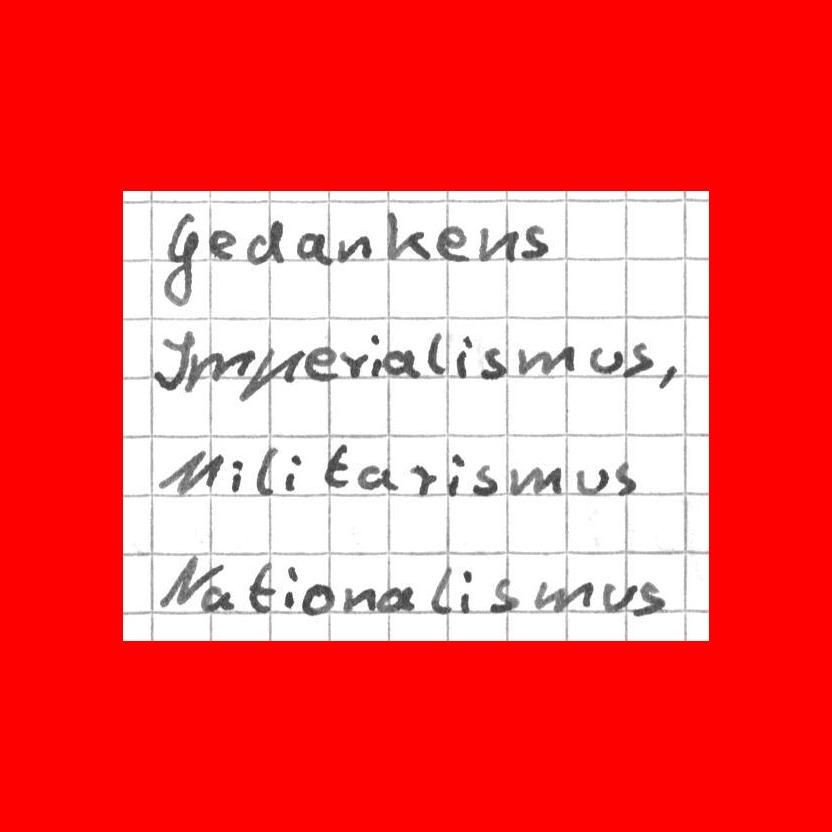 Gedankens
Imperialismus,
Militarismus
Nationalismus